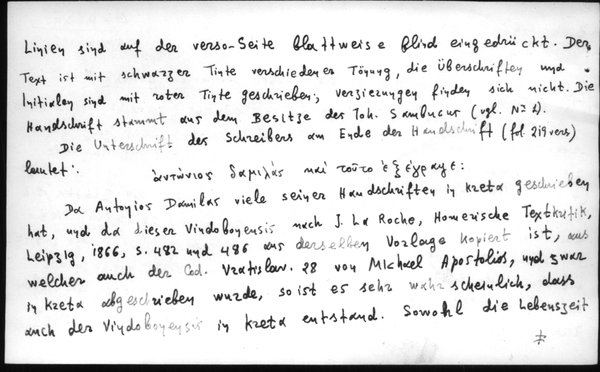 Linien sind auf der verso-Seite blattweise blind eingedrückt. Der
Text ist mit schwarzer Tinte verschiedener Tönung, die Überschriften und
Initialen sind mit roter Tinte geschrieben; verzierungen finden sich nicht. Die
Handschrift stammt aus dem Besitze des Joh. Sambucus (vgl. No 2).
Die Unterschrift des Schreibers am Ende der Handschrift (fol. 219 vers)
lautet:
ἀντώνιος δαμιλὰς καὶ τοῦτο ἐξέγραψε:
Da Antonios Damilas viele seiner Handschriften in Kreta geschrieben
hat, und da dieser Vindobonensis nach J. La Roche, Homerische Textkritik,
Leipzig, 1866, S. 482 und 486 aus derselben Vorlage kopiert ist, aus
welcher auch der Cod. Vratislav. 28 von Michael Apostolios, und zwar
in Kreta abgeschrieben wurde, so ist es sehr wahrscheinlich, dass
auch der Vindobonensis in Kreta entstand. Sowohl die Lebenszeit